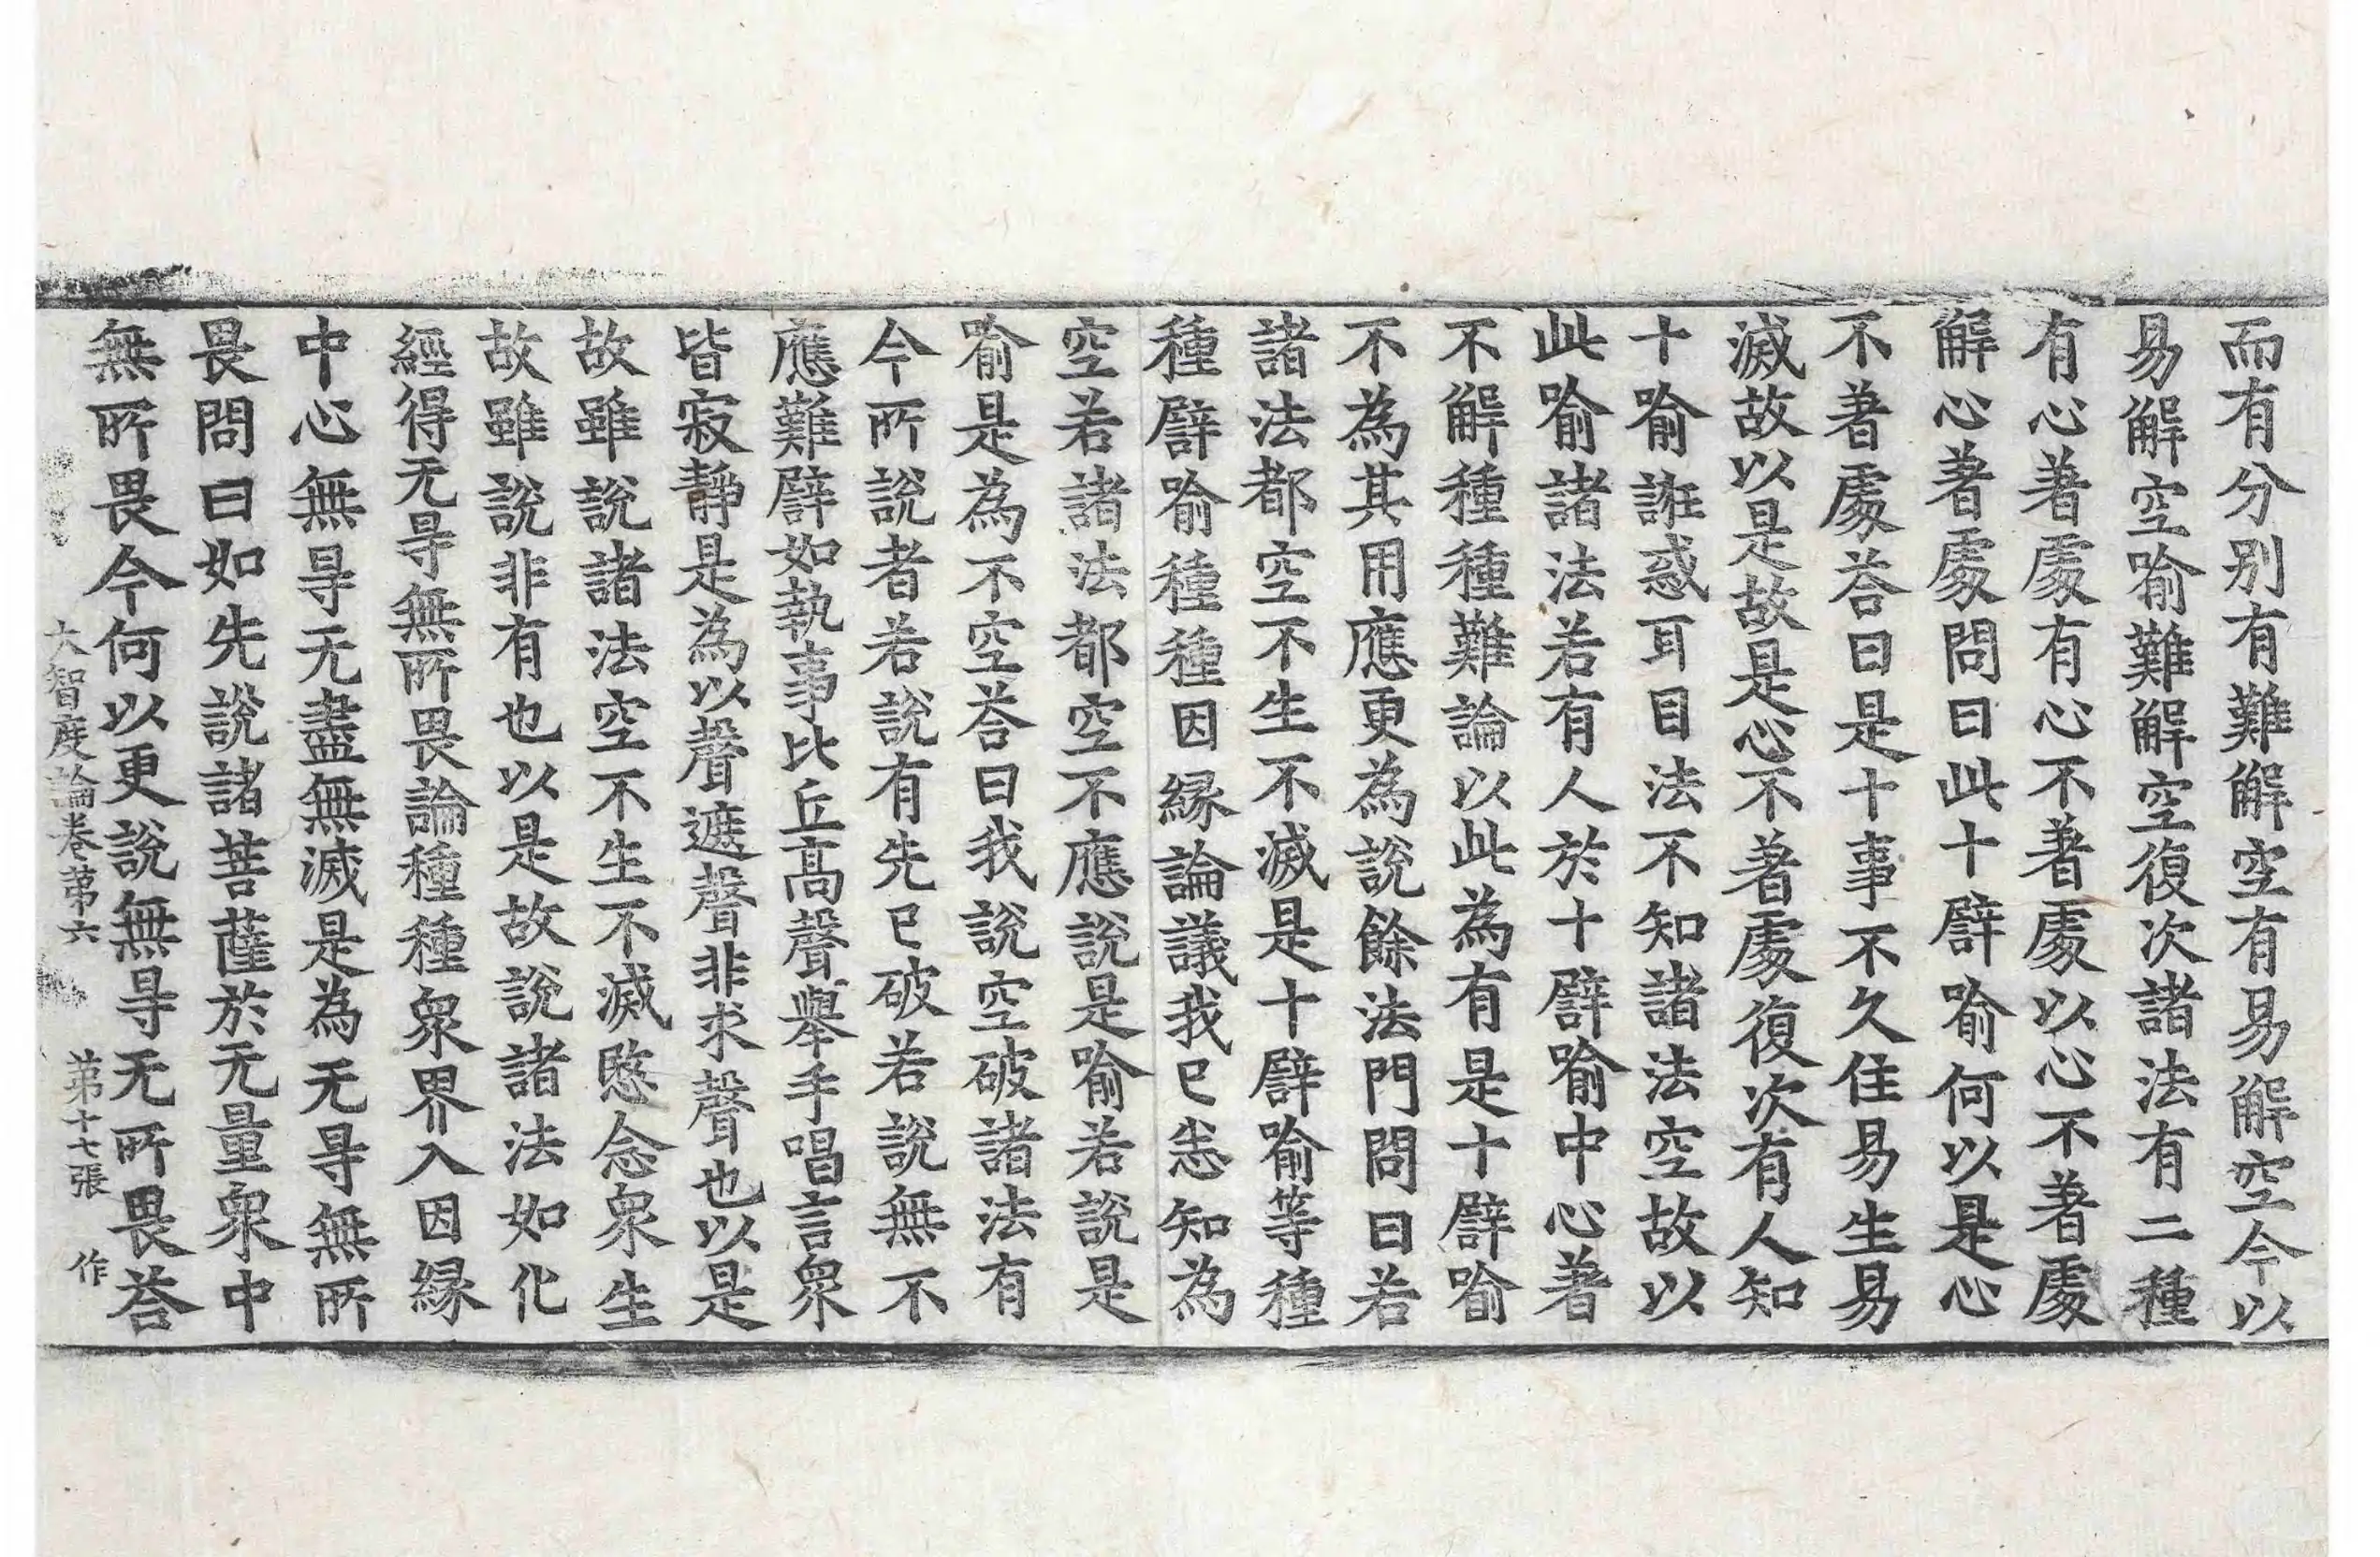 而有分别有難解空有易解空今以
易解空喻難解空復次諸法有二種
有心著處有心不著處以心不著處
解心著處問曰此十譬喻何以是心
不著處荅曰是十事不久住易生易
滅故以是故是心不著處復次有人知
十喻誑惑耳目法不知諸法空故以
此喻諸法若有人於十譬喻中心著
不解種種難論以此為有是十譬喻
不為其用應更為說餘法門問曰若
諸法都空不生不滅是十譬喻等種
種譬喻種種因緣論議我已悉知為
空若諸法都空不應說是喻若說是
喻是為不空荅曰我說空破諸法有
今所說者若說有先已破若說無不
應難譬如執事比丘高聲舉手唱言衆
皆寂靜是為以聲遮聲非求聲也以是
故雖說諸法空不生不滅愍念衆生
故雖說非有也以是故說諸法如化
經得无㝵無所畏論種種衆界入因緣
中心無㝵无盡無滅是為无㝵無所
畏問曰如先說諸菩薩於无量衆中
無所畏今何以更說無㝵无所畏荅
大智度論卷第六　第十七張　作